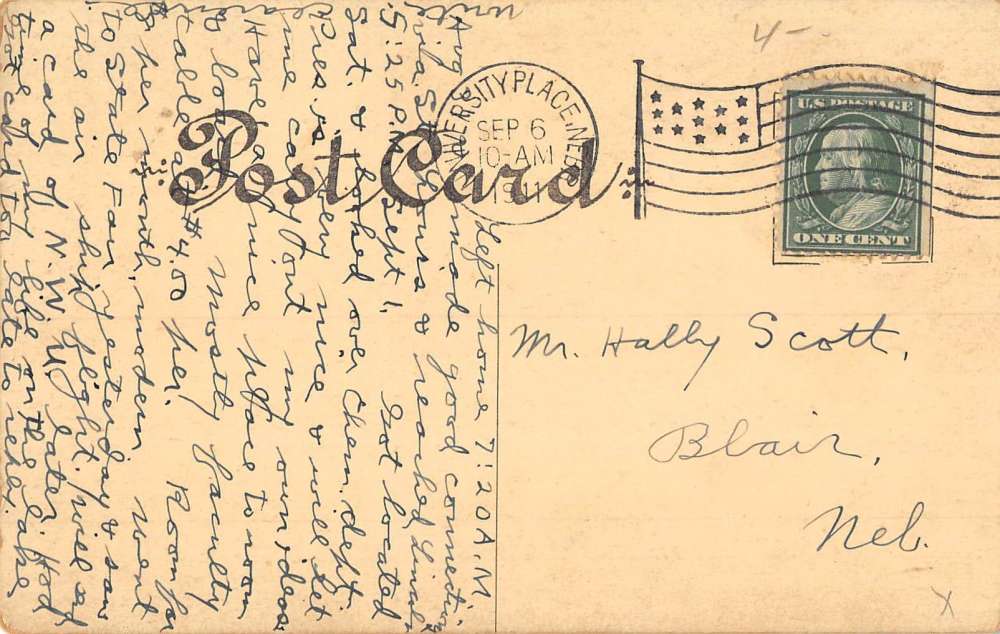 Post Card
UNIVERSITY PLACE, NEB.
SEP 6
10-AM
1911
U.S. POSTAGE
ONE CENT
4-
Left home 7:20 A.M
Aug made good connection
via. & reached Lincoln
5:25 P.M. Sept 1. Got located
Sat. & looked over Chem. dept.
Pres. is very nice & will let
me carry out my own ideas
Have a nice place to room
& board. Mostly faculty
table at $4.00 per. Room for
$8 per month, modern went
to State Fair yesterday & saw
the air ship flight. will
a card of N.W.U. later. Had
time of my life on the lake
card too late to
Write
Clarence
Mr. Hally Scott,
Blair,
Neb.
X